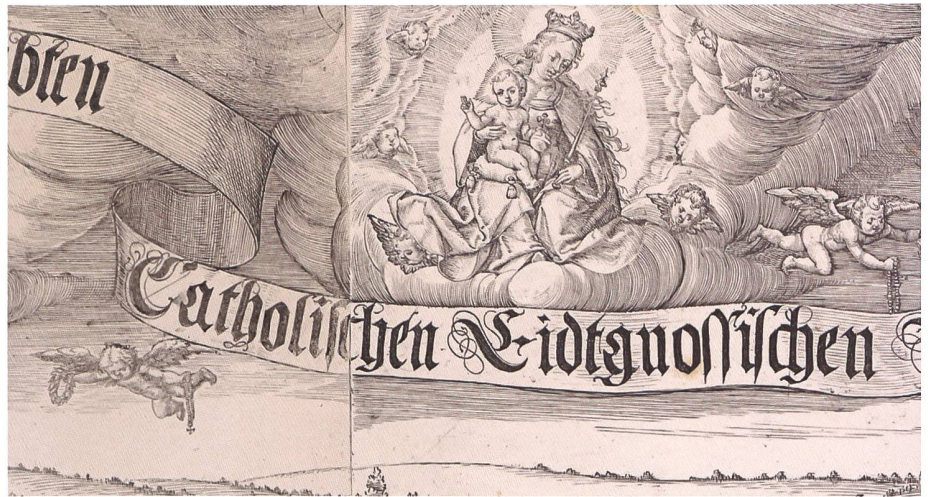 bten
Catholischen Eidtgnossischen